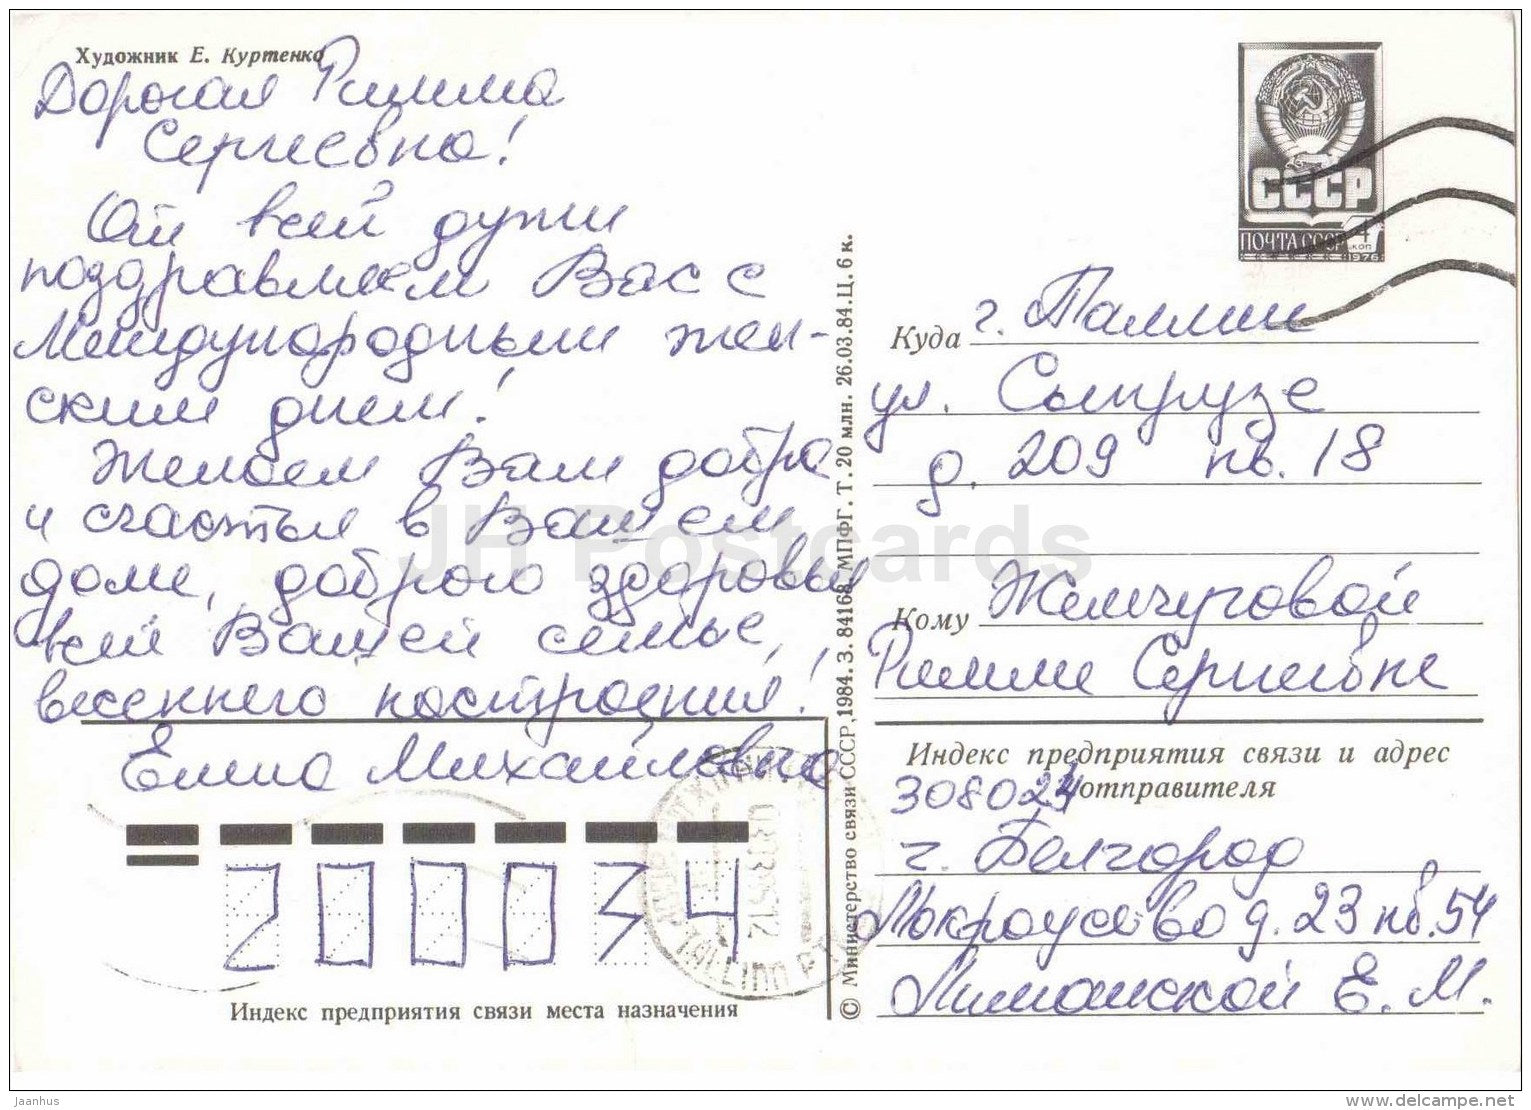 Художник Е. Куртенко
Дорогая Римма
Сергеевна!
От всей души
поздравляем Вас с
Международным жен-
ским днем!
Желаем Вам добра
и счастья в Вашем
доме, доброго здоровья
всей Вашей семье,
весеннего настроения!
Елина Михайловна
200034
Индекс предприятия связи места назначения
© Министерство связи СССР, 1984. З. 84168. МПФГ. Т. 20 млн. 26.03.84. Ц. 6 к.
СССР
ПОЧТА СССР 4 коп
1976
Куда г. Таллин
ул. Сыпрузе
д. 209 кв. 18
Кому Жемчуговой
Римме Сергеевне
Индекс предприятия связи и адрес
отправителя
308024
г. Белгород
д. 23 кв. 54
Лиманской Е. М.
TALLINN
JH Postcards
Jaanhus
delcampe.net